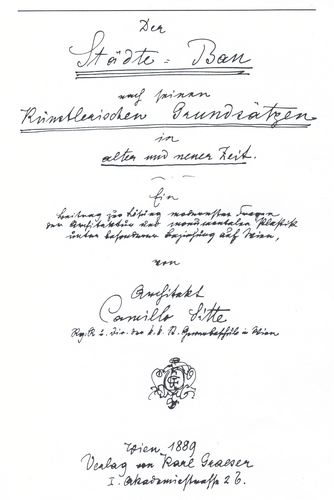 Der
Städte=Bau
nach seinen
Künstlerischen Grundsätzen
in
alter und neuer Zeit.
Ein
Beitrag zur Lösung modernster Fragen
der Architektur und monumentalen Plastik
unter besonderer Beziehung auf Wien,
von
Architekt
Camillo Sitte
Rg. R. u. Dir. der k. k. St. Gewerbeschule in Wien
Wien 1889
Verlag von Karl Graeser
I. Akademiestrasse 26.